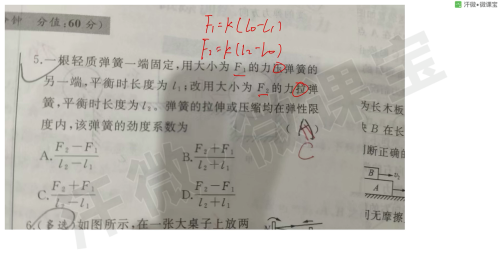 汗微·微课宝
钟 分值:60分)
F₁=k(l₀-l₁)
F₂=k(l₂-l₀)
5.一根轻质弹簧一端固定,用大小为F₁的力压弹簧的
另一端,平衡时长度为l₁;改用大小为F₂的力拉弹
簧,平衡时长度为l₂、弹簧的拉伸或压缩均在弹性限
度内,该弹簧的劲度系数为 ( A )
C
A. F₂-F₁/l₂-l₁ B. F₂+F₁/l₂+l₁
C. F₂+F₁/l₂-l₁ D. F₂-F₁/l₂+l₁
6.(多选)如图所示,在一张大桌子上放两
为长木板
块B在长
判断正确的
B v₂
A
可无摩擦
汗微 微课宝